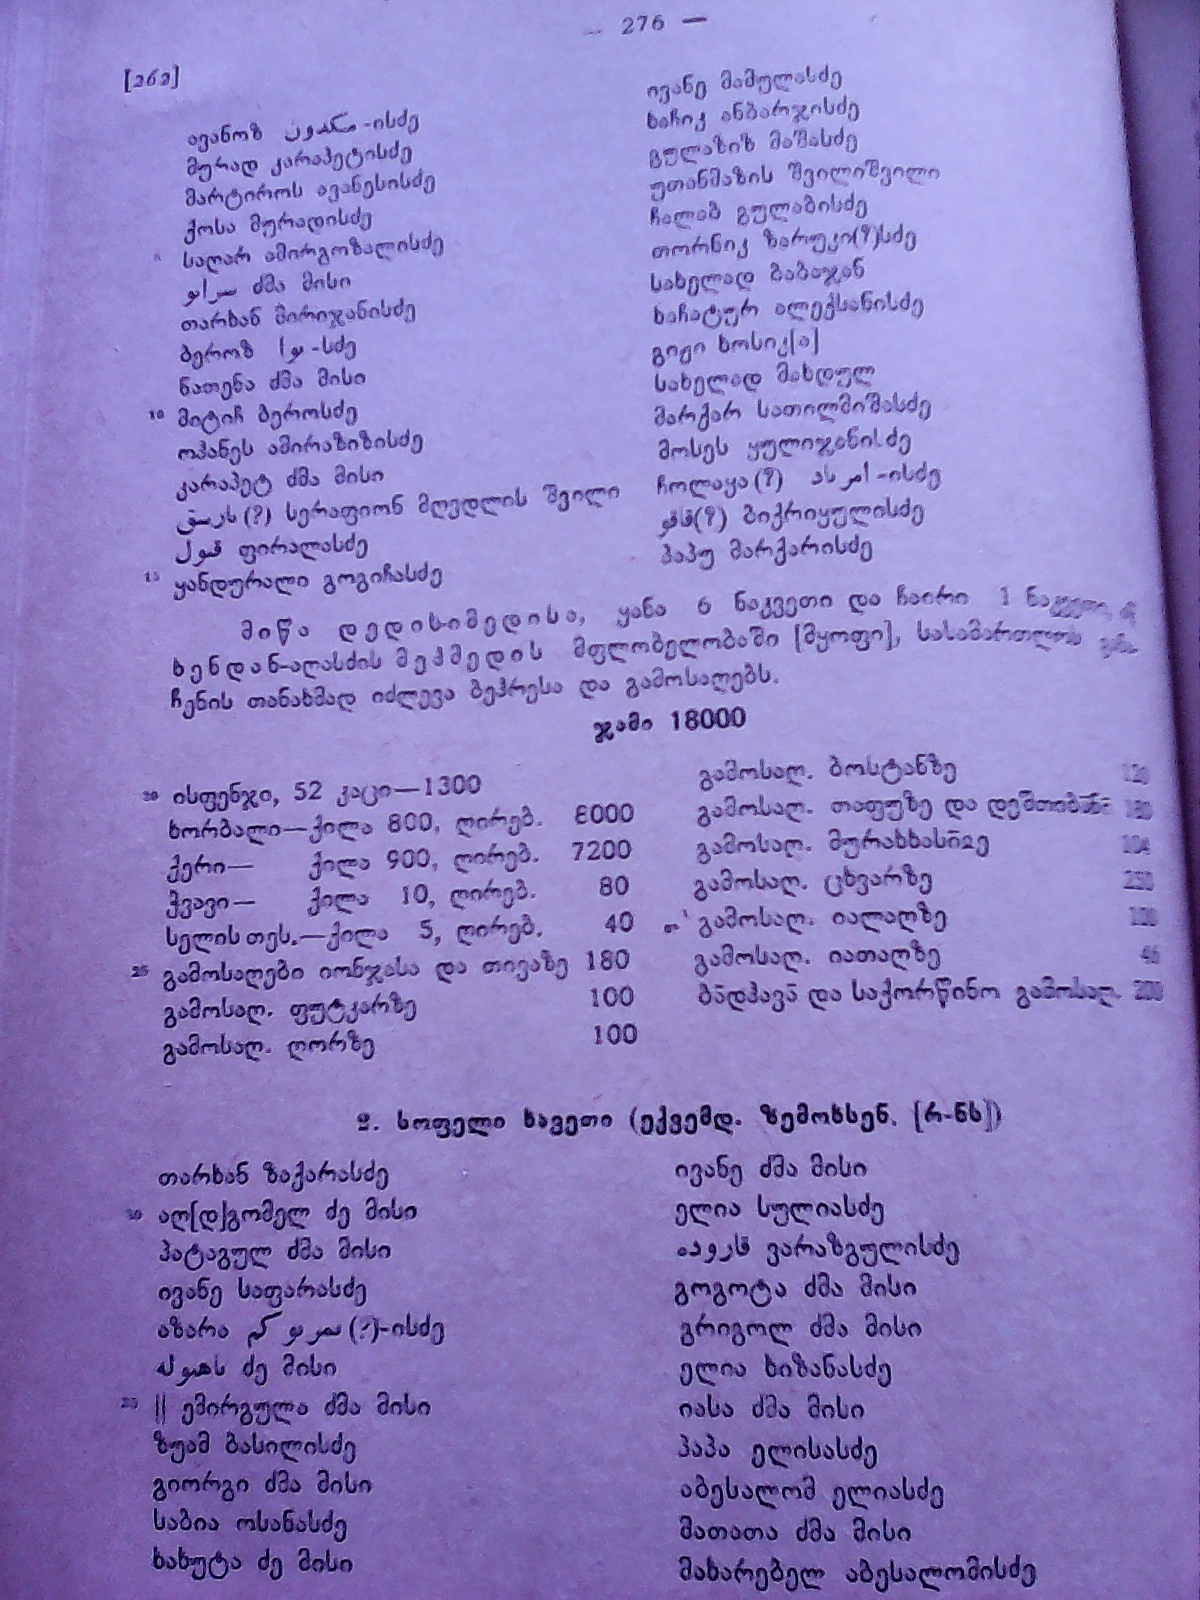 — 276 —
[262]
ავანოზ -ისძე
მურად კარაპეტისძე
მარტიროს ავანესისძე
ქოსა მურადისძე
საღარ ამირგოზალისძე
سراو ძმა მისი
თარხან მირიჯანისძე
ბეროზ -სძე
ნათენა ძმა მისი
10 მიტიჩ ბეროსძე
ოჰანეს ამირაზიზისძე
კარაპეტ ძმა მისი
(?) სერაფიონ მღვდლის შვილი
قبول ფირალასძე
15 ყანდურალი გოგიჩასძე
ივანე მამულასძე
ხაჩიკ ანბარჯისძე
გულაზიზ მაშასძე
უთანმაზის შვილიშვილი
ჩალაბ გულაბისძე
თორნიკ ზარუკი(?)სძე
სახელად ბაბაჯან
ხაჩატურ ალექსანისძე
გიჟი ხოსიკ[ა]
სახელად მახდულ
მარქარ სათილმიშასძე
მოსეს ყულიჯანისძე
ჩოლაყა(?) -ისძე
(?) ბიქრიყულისძე
პაპუ მარქარისძე
მიწა დედისიმედისა, ყანა 6 ნაკვეთი და ჩაირი 1
ხენდან-აღასძის მეჰმედის მფლობელობაში [მყოფი], სასამართლოს
ჩენის თანახმად იძლევა ბეჰრესა და გამოსაღებს.
ჯამი 18000
20 ისფენჯი, 52 კაცი—1300
ხორბალი—ქილა 800, ღირებ. 8000
ქერი— ქილა 900, ღირებ. 7200
ჭვავი— ქილა 10, ღირებ. 80
სელის თეს.—ქილა 5, ღირებ. 40
25 გამოსაღები იონჯასა და თივაზე 180
გამოსაღ. ფუტკარზე 100
გამოსაღ. ღორზე 100
გამოსაღ. ბოსტანზე 120
გამოსაღ. თაფუზე და დეშთიბანზე 180
გამოსაღ. მურახხასიაზე 104
გამოსაღ. ცხვარზე 250
გამოსაღ. იალაღზე 100
გამოსაღ. იათაღზე 46
ბადჰავა და საქორწინო გამოსაღ. 200
2. სოფელი ხავეთი (ექვემდ. ზემოხსენ. [რ-ნს])
თარხან ზაქარასძე
30 აღ[დ]გომელ ძე მისი
პატაგულ ძმა მისი
ივანე საფარასძე
აზარა (?)-ისძე
ძე მისი
35 || ემირგულა ძმა მისი
ზუამ ბასილისძე
გიორგი ძმა მისი
საბია ოსანასძე
ხახუტა ძე მისი
ივანე ძმა მისი
ელია სულიასძე
ვარაზგულისძე
გოგოტა ძმა მისი
გრიგოლ ძმა მისი
ელია ხიზანასძე
იასა ძმა მისი
პაპა ელისასძე
აბესალომ ელიასძე
მათათა ძმა მისი
მახარებელ აბესალომისძე